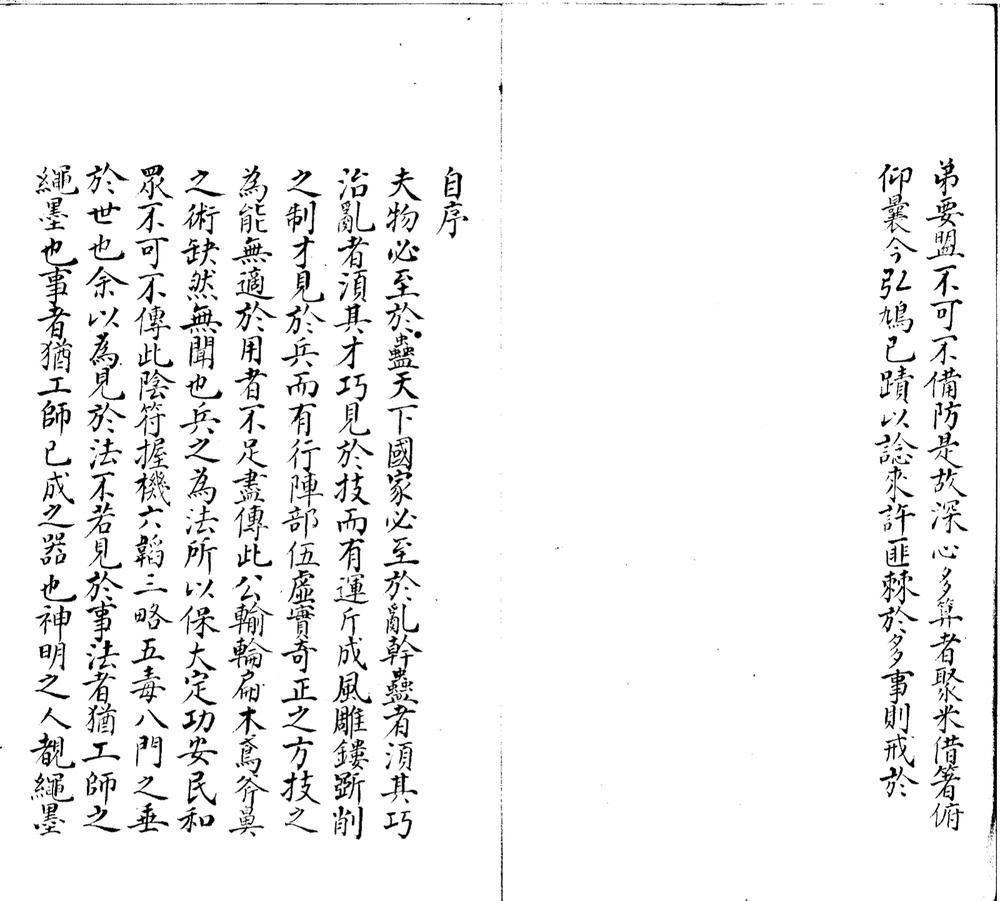 弟要盟不可不備防是故深心多算者聚米借箸俯
仰曩今引鳩已蹟以諗來許匪棘於多事則戒於
自序
夫物必至於蠱天下國家必至於亂幹蠱者須其巧
治亂者須其才巧見於技而有運斤成風雕鏤斲削
之制才見於兵而有行陣部伍虛實奇正之方技之
為能無適於用者不足盡傳此公輸輪扁木鳶斧鼻
之術缺然無聞也兵之為法所以保大定功安民和
眾不可不傳此陰符握機六韜三略五毒八門之垂
於世也余以為見於法不若見於事法者猶工師之
繩墨也事者猶工師已成之器也神明之人覩繩墨